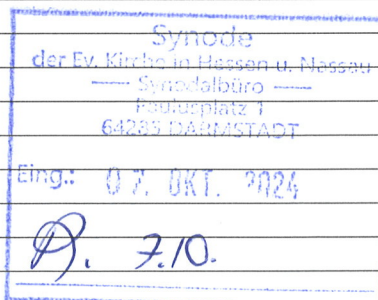 Synode
der Ev. Kirche in Hessen u. Nassau
— Synodalbüro —
Paulusplatz 1
64285 DARMSTADT
Eing.: 07. OKT. 2024
7.10.